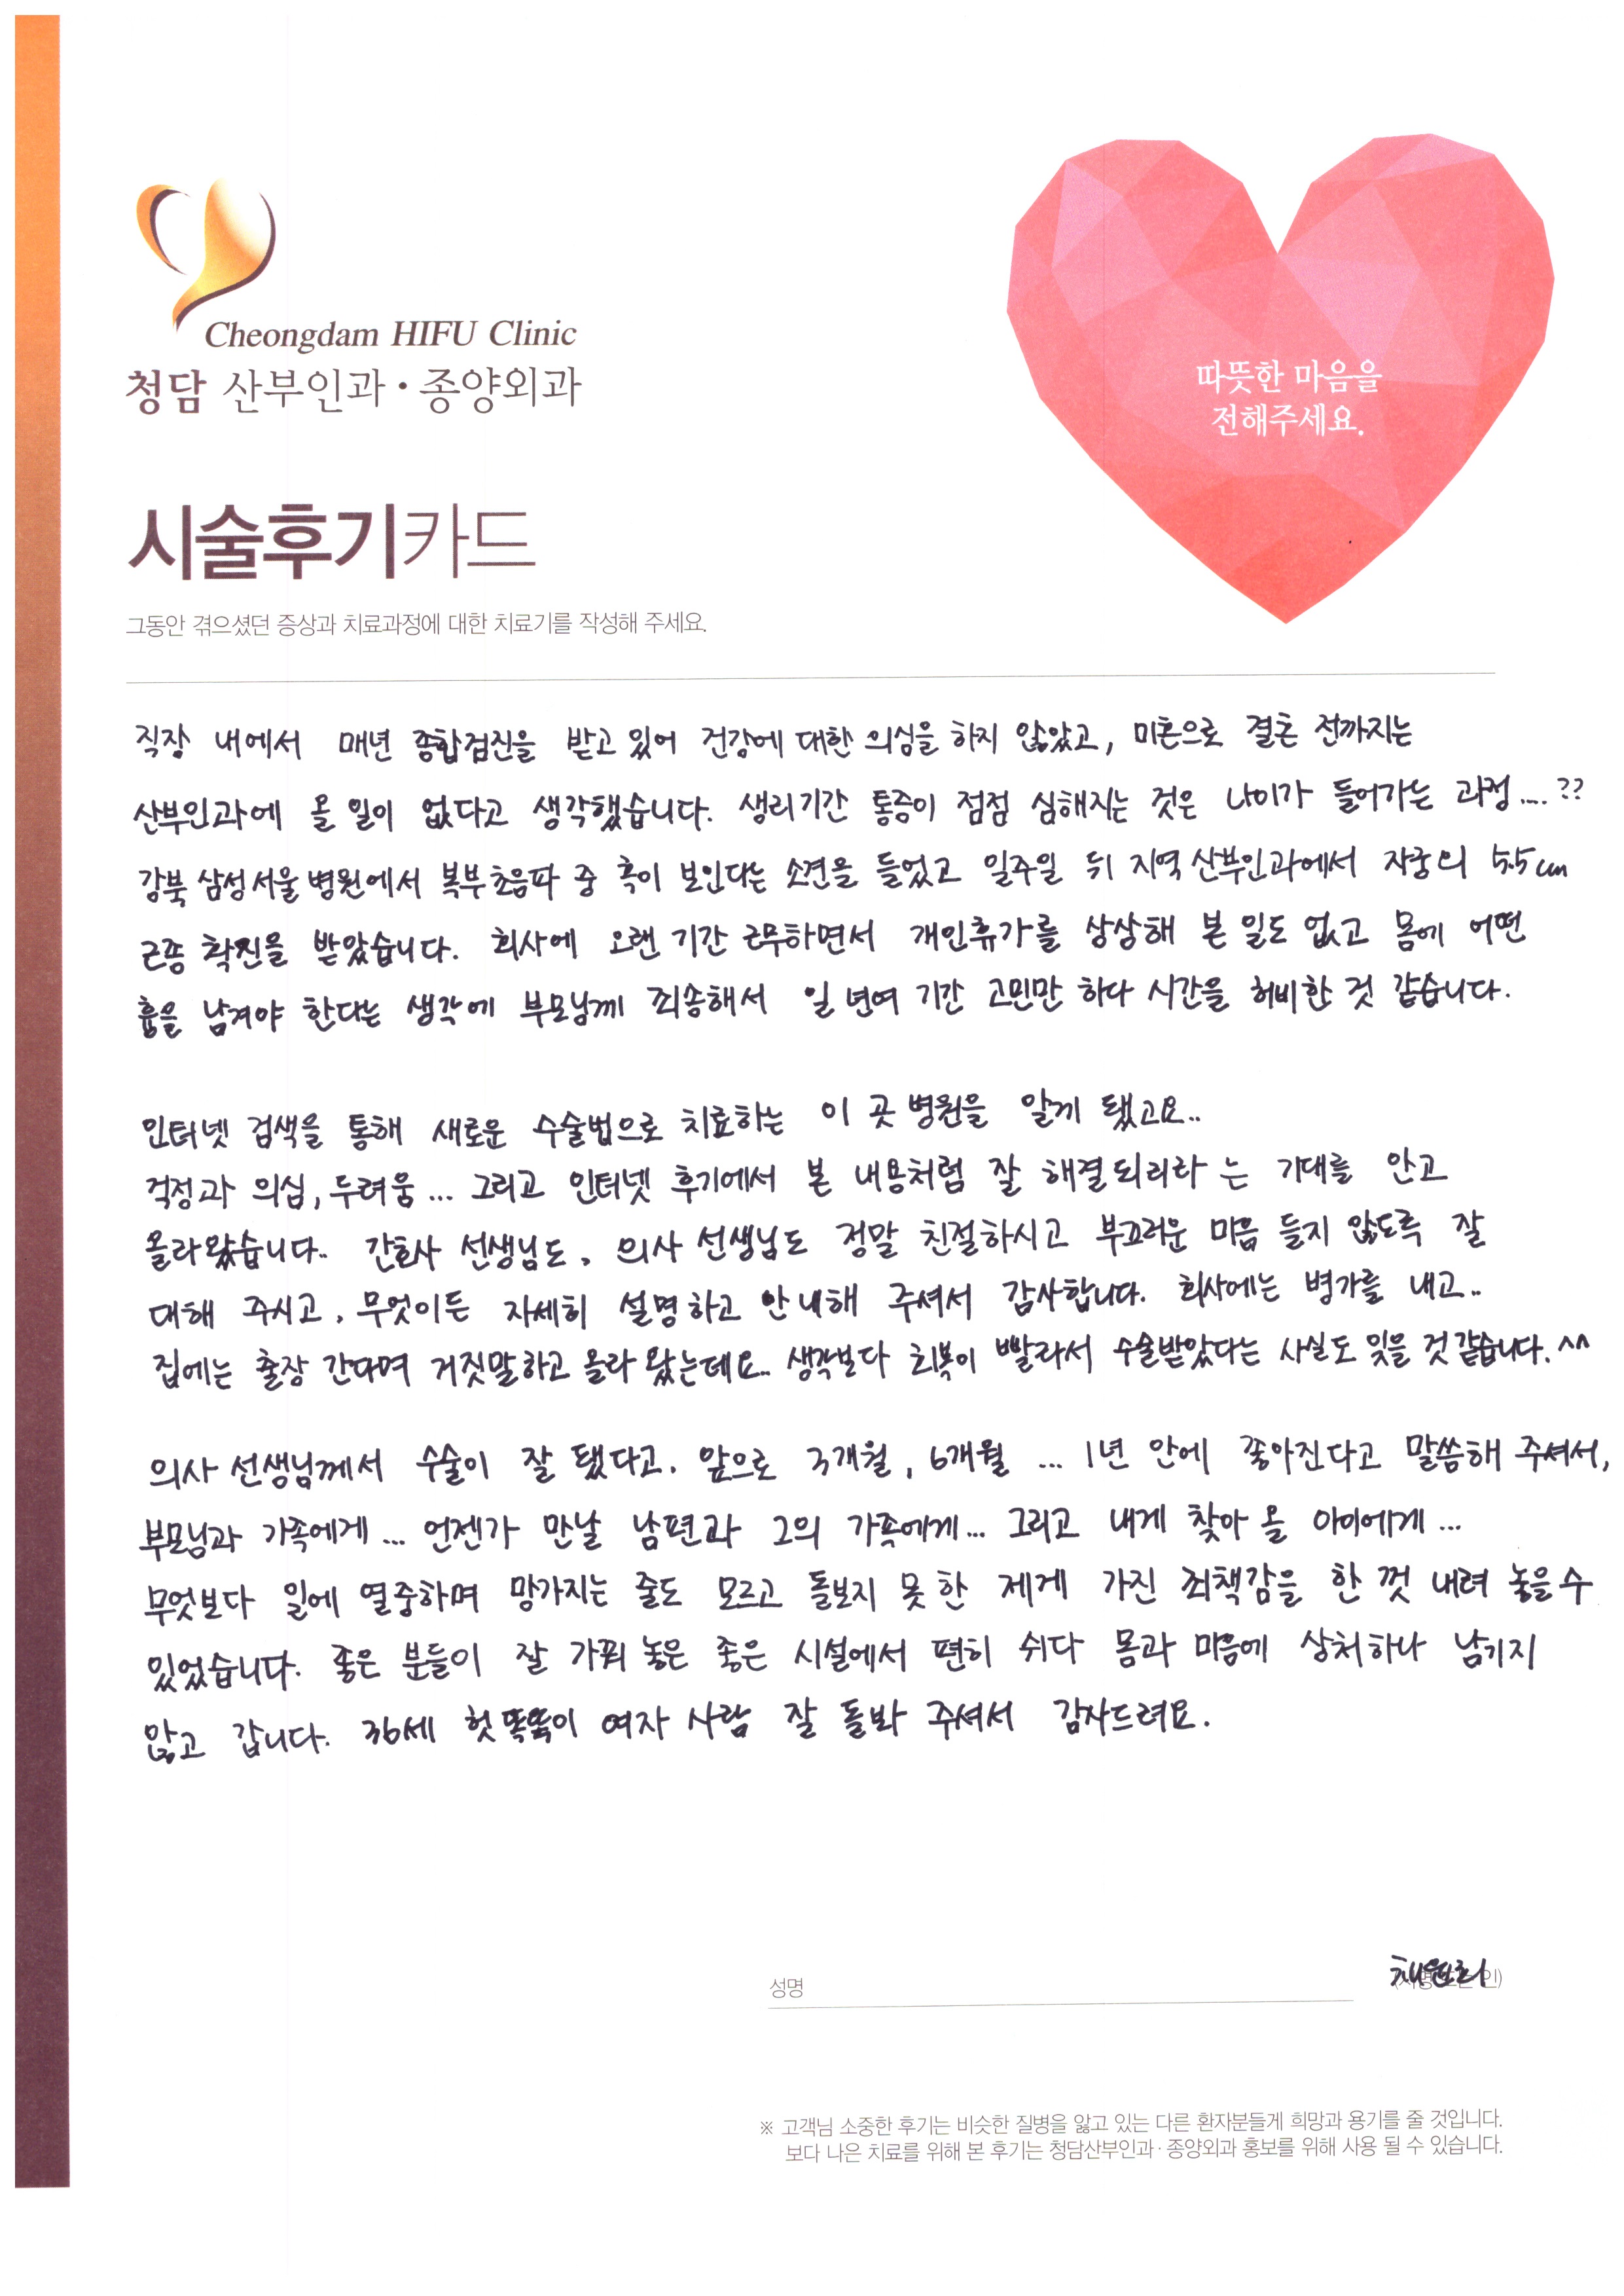 Cheongdam HIFU Clinic
청담 산부인과·종양외과
따뜻한 마음을
전해주세요.
시술후기카드
그동안 겪으셨던 증상과 치료과정에 대한 치료기를 작성해 주세요.
직장 내에서 매년 종합검진을 받고 있어 건강에 대한 의심을 하지 않았고, 미혼으로 결혼 전까지는
산부인과에 올 일이 없다고 생각했습니다. 생리기간 통증이 점점 심해지는 것은 나이가 들어가는 과정....??
강북 삼성서울병원에서 복부초음파 중 혹이 보인다는 소견을 들었고 일주일 뒤 지역 산부인과에서 자궁의 5.5cm
근종 확진을 받았습니다. 회사에 오랜 기간 근무하면서 개인휴가를 상상해 본 일도 없고 몸에 어떤
흠을 남겨야 한다는 생각에 부모님께 죄송해서 일 년여 기간 고민만 하다 시간을 허비한 것 같습니다.
인터넷 검색을 통해 새로운 수술법으로 치료하는 이 곳 병원을 알게 됐고요..
걱정과 의심, 두려움... 그리고 인터넷 후기에서 본 내용처럼 잘 해결되리라 는 기대를 안고
올라왔습니다.. 간호사 선생님도, 의사 선생님도 정말 친절하시고 부끄러운 마음 들지 않도록 잘
대해 주시고, 무엇이든 자세히 설명하고 안내해 주셔서 감사합니다. 회사에는 병가를 내고..
집에는 출장 간다며 거짓말하고 올라 왔는데요.. 생각보다 회복이 빨라서 수술받았다는 사실도 잊을 것 같습니다. ^^
의사 선생님께서 수술이 잘 됐다고. 앞으로 3개월, 6개월 ... 1년 안에 좋아진다고 말씀해 주셔서,
부모님과 가족에게... 언젠가 만날 남편과 그의 가족에게... 그리고 내게 찾아 올 아이에게...
무엇보다 일에 열중하며 망가지는 줄도 모르고 돌보지 못 한 제게 가진 죄책감을 한 껏 내려 놓을 수
있었습니다. 좋은 분들이 잘 가꿔 놓은 좋은 시설에서 편히 쉬다 몸과 마음에 상처하나 남기지
않고 갑니다. 36세 헛똑똑이 여자 사람 잘 돌봐 주셔서 감사드려요.
성명
인)
※ 고객님 소중한 후기는 비슷한 질병을 앓고 있는 다른 환자분들게 희망과 용기를 줄 것입니다.
보다 나은 치료를 위해 본 후기는 청담산부인과·종양외과 홍보를 위해 사용 될 수 있습니다.